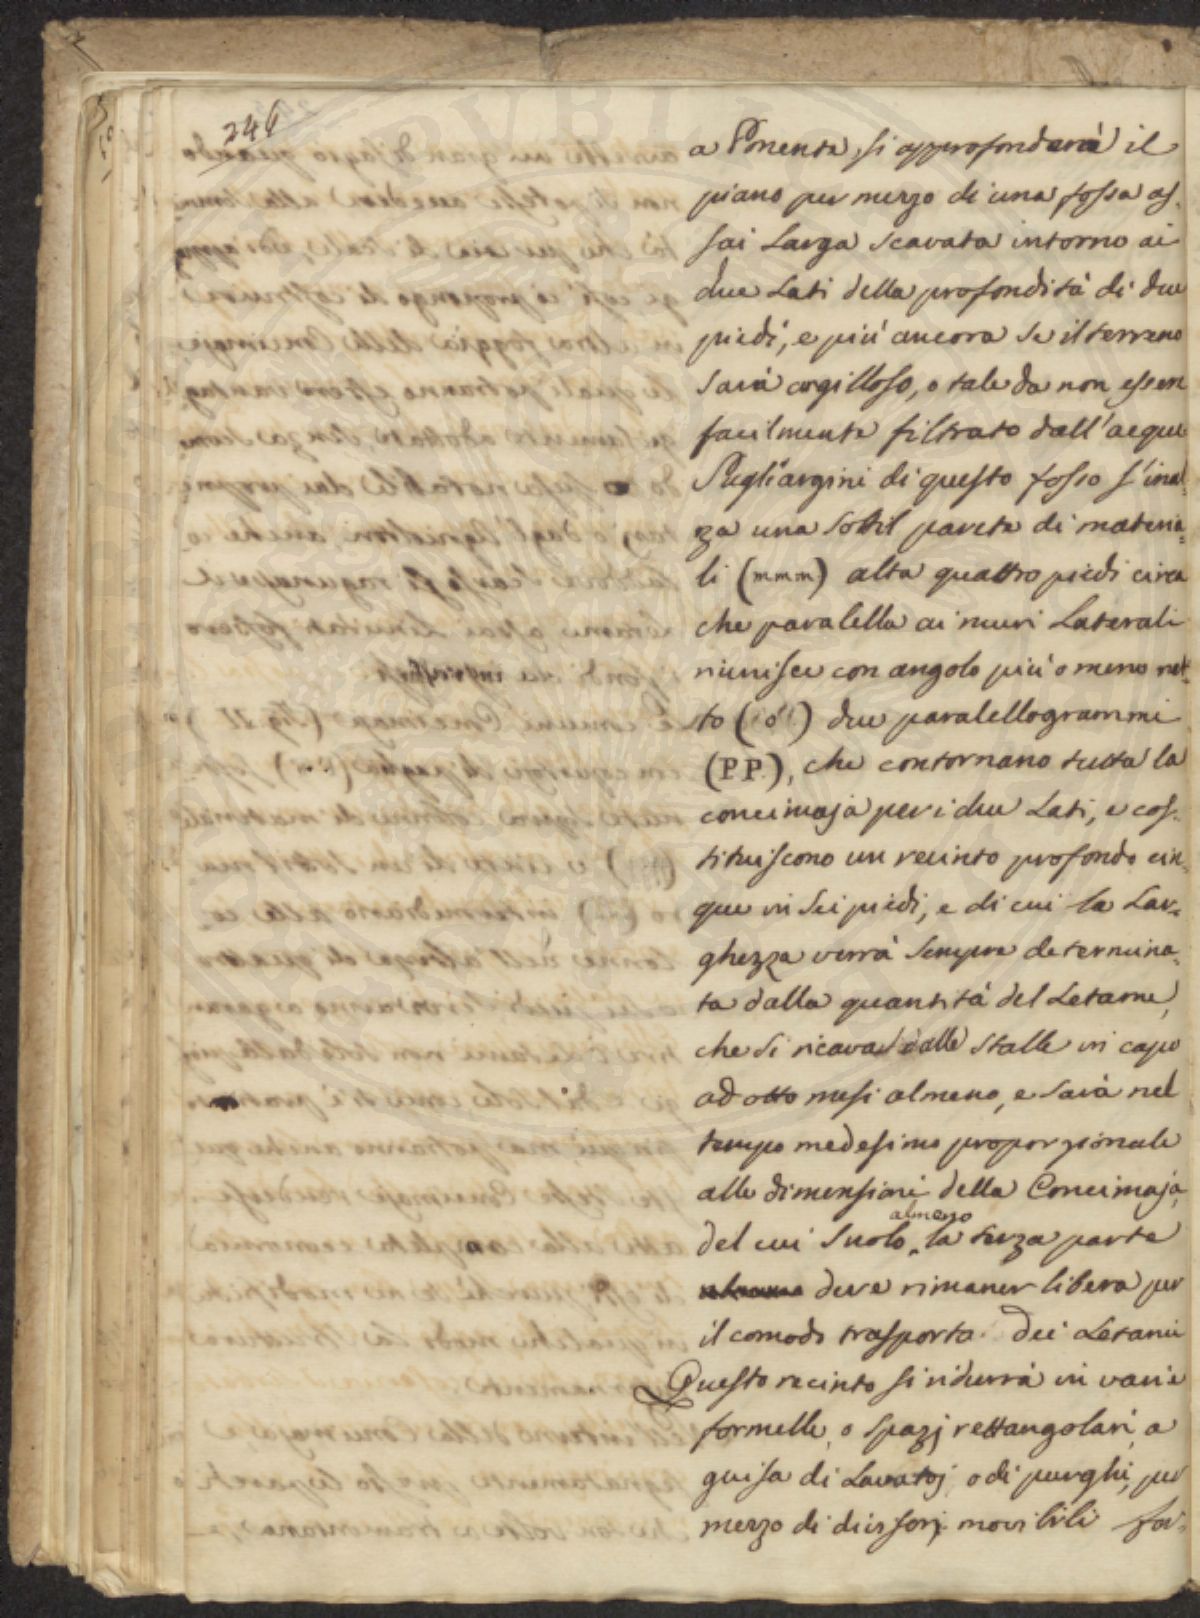 246
a Ponente, si approfonderà il
piano per mezzo di una fossa as-
sai Larga scavata intorno ai
due Lati della profondità di due
piedi, e più ancora se il terreno
sarà argilloso, o tale da non essere
facilmente filtrato dall'acque
Sugli argini di questo fosso s'inal=
za una sottil parete di materia=
li (mmm) alta quattro piedi circa
che paralella ai muri Laterali
riunisce con angolo più o meno ret=
to (ó) due paralellogrammi
(PP), che contornano tutta la
concimaja per i due Lati, e cos-
tituiscono un recinto profondo cin-
que in sei piedi, e di cui la Lar=
ghezza verrà sempre determina=
ta dalla quantità del Letame,
che si ricava dalle stalle in capo
ad otto mesi almeno, e sarà nel
tempo medesimo proporzionale
alle dimensioni della Concimaja,
almeno
del cui suolo la terza parte
deve rimaner libera per
il comodo trasporto dei Letami
Questo recinto si ridurrà in varie
formelle, o spazj rettangolari, a
guisa di Lavatoj, o di purghi, per
mezzo di divisorj movibili for-